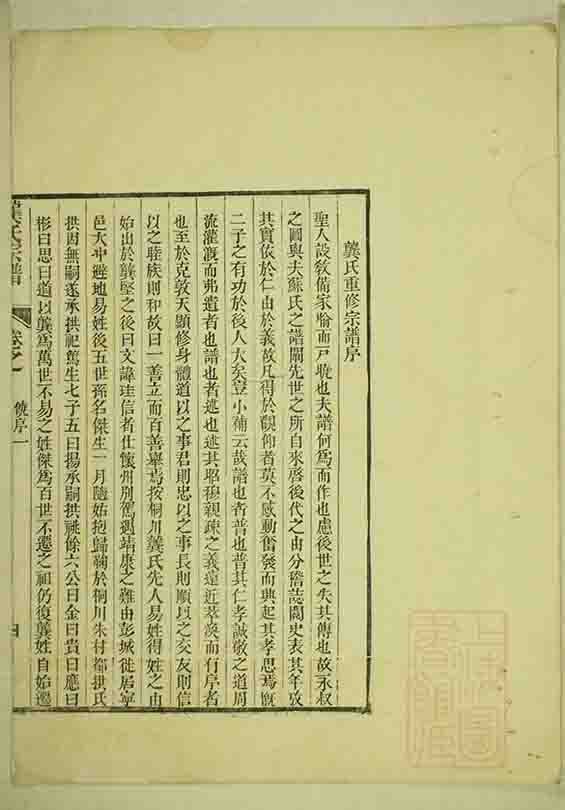 龔氏重修宗譜序
聖人設教備家喻而戸曉也夫譜何為而作也慮後世之失其傳也故永叔
之圖與夫蘇氏之譜闡先世之所自來啓後代之由分䆁誌閥史表其年攷
其實依於仁由於義故凡得於觀仰者莫不感動奮發而興起其孝思焉慨
二子之有功於後人大矣豈小補云哉譜也者普也普其仁孝誠敬之道周
流灌溉而弗遺者也譜也者述也述其昭穆親疎之義遠近萃渙而有序者
也至於克敦天顯修身體道以之事君則忠以之事長則順以之交友則信
以之睦族則和故曰一善立而百善舉焉按桐川龔氏先人易姓得姓之由
始出於龔堅之後曰文諱珪信者仕懷州別駕遇靖康之難由彭城徙居寧
邑大中避地易姓後五世孫名傑生一月隨姑抱歸鞠於桐川朱村都拱氏
拱因無嗣遂承拱祀篤生七子五曰揚承嗣拱祧餘六公曰金曰貴曰應曰
彬曰思曰道以龔為萬世不易之姓傑為百世不遷之祖仍復龔姓自始遷
龔氏宗譜 卷之一 後序一 四